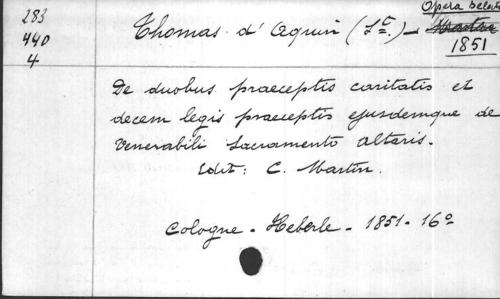 283
440
4
Thomas d'Aquin (St.) — Opera selecta
1851
De duobus praeceptis caritatis et
decem legis praeceptis ejusdemque de
Venerabili Sacramento altaris.
Edit: C. Martin.
Cologne - Heberle - 1851 - 16o